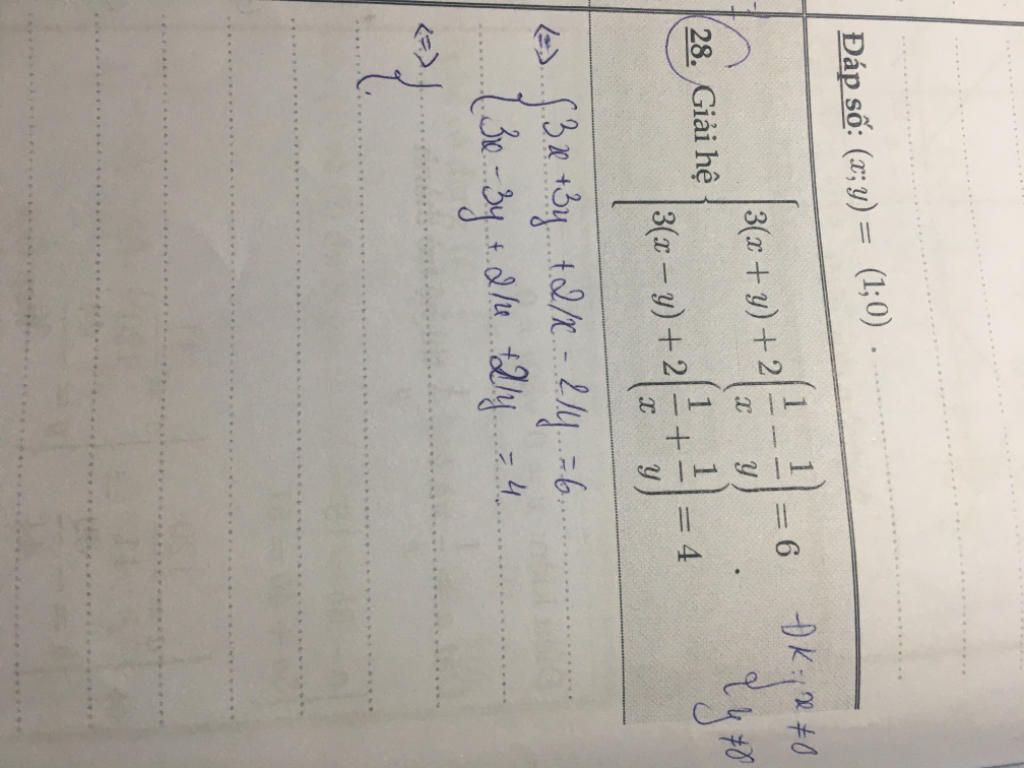 Đáp số: (x; y) = (1; 0) .
28. Giải hệ { 3(x + y) + 2(1/x − 1/y) = 6
3(x − y) + 2(1/x + 1/y) = 4 .
ĐK: { x ≠ 0
y ≠ 0
<=> { 3x + 3y + 2/x - 2/y = 6
3x - 3y + 2/x + 2/y = 4
<=> {